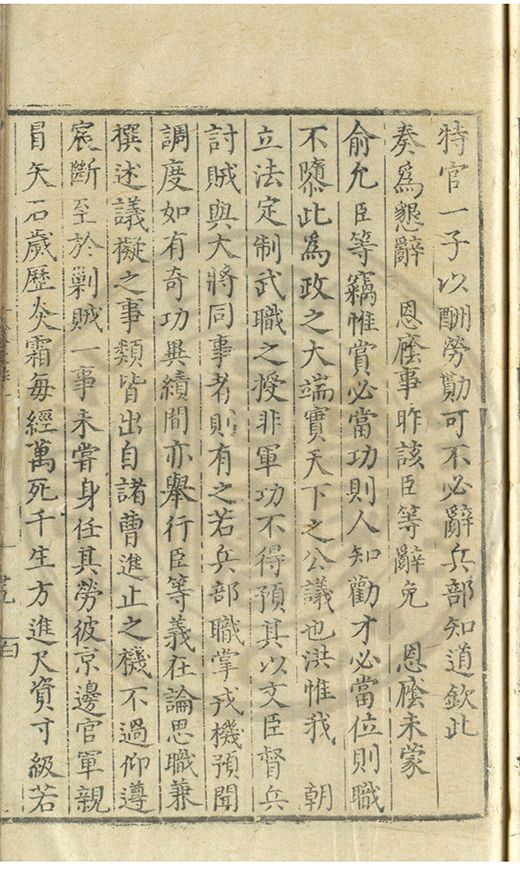 特官一子以酬勞勩可不必辭兵部知道欽此
奏爲懇辭　恩廕事昨該臣等辭免　恩廕未蒙
俞允臣等竊惟賞必當功則人知勸才必當位則職
不隳此爲政之大端實天下之公議也洪惟我　朝
立法定制武職之授非軍功不得預其以文臣督兵
討賊與大將同事者則有之若兵部職掌戎機預聞
調度如有奇功異績間亦舉行臣等義在論思職兼
撰述議擬之事類皆出自諸曹進止之機不過仰遵
宸斷至於剿賊一事未嘗身任其勞彼京邊官軍親
冒矢石歲歷炎霜每經萬死千生方進尺資寸級若